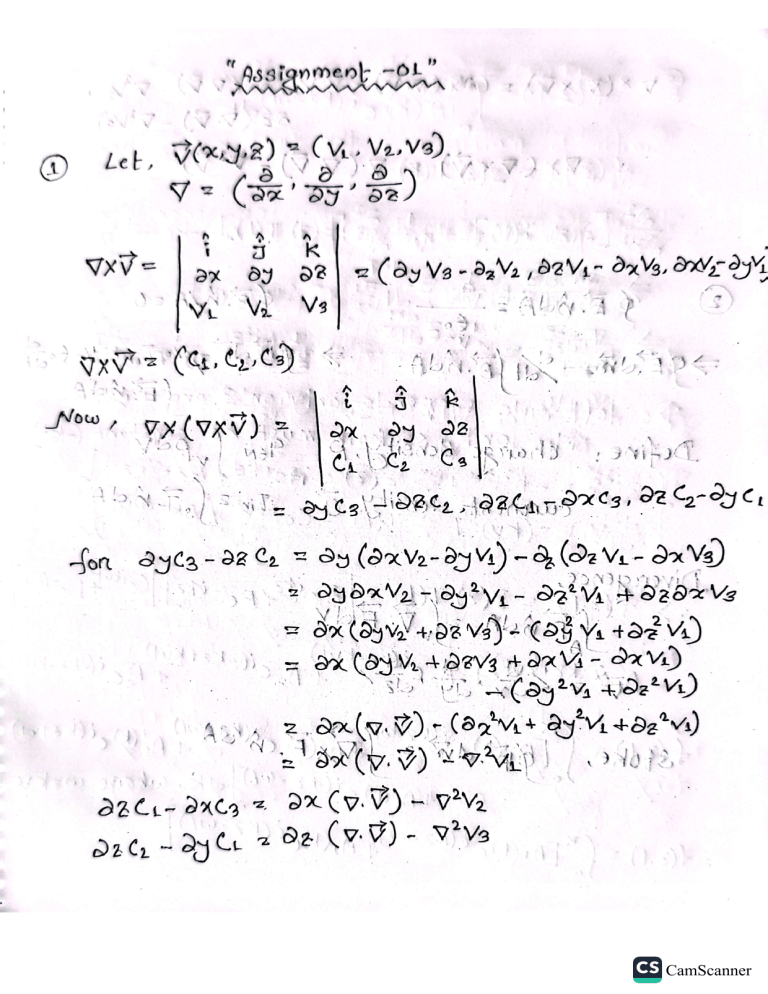 "Assignment -01"
① Let, V⃗(x,y,z) = (V₁, V₂, V₃)
∇ = (∂/∂x, ∂/∂y, ∂/∂z)
∇×V⃗ = | î ĵ k̂ |
| ∂x ∂y ∂z | = (∂yV₃ - ∂zV₂, ∂zV₁ - ∂xV₃, ∂xV₂-∂yV₁
| V₁ V₂ V₃ |
∇×V⃗ = (C₁, C₂, C₃)
Now, ∇×(∇×V⃗) = | î ĵ k̂ |
| ∂x ∂y ∂z |
| C₁ C₂ C₃ |
= ∂yC₃ - ∂zC₂, ∂zC₁ - ∂xC₃, ∂zC₂-∂yC₁
for ∂yC₃ - ∂zC₂ = ∂y(∂xV₂-∂yV₁) - ∂z(∂zV₁ - ∂xV₃)
= ∂y∂xV₂ - ∂y²V₁ - ∂z²V₁ + ∂z∂xV₃
= ∂x(∂yV₂ + ∂zV₃) - (∂y²V₁ + ∂z²V₁)
= ∂x(∂yV₂ + ∂zV₃ + ∂xV₁ - ∂xV₁)
- (∂y²V₁ + ∂z²V₁)
= ∂x(∇.V⃗) - (∂x²V₁ + ∂y²V₁ + ∂z²V₁)
= ∂x(∇.V⃗) - ∇²V₁
∂zC₁ - ∂xC₃ = ∂x(∇.V⃗) - ∇²V₂
∂zC₂ - ∂yC₁ = ∂z(∇.V⃗) - ∇²V₃
CS CamScanner